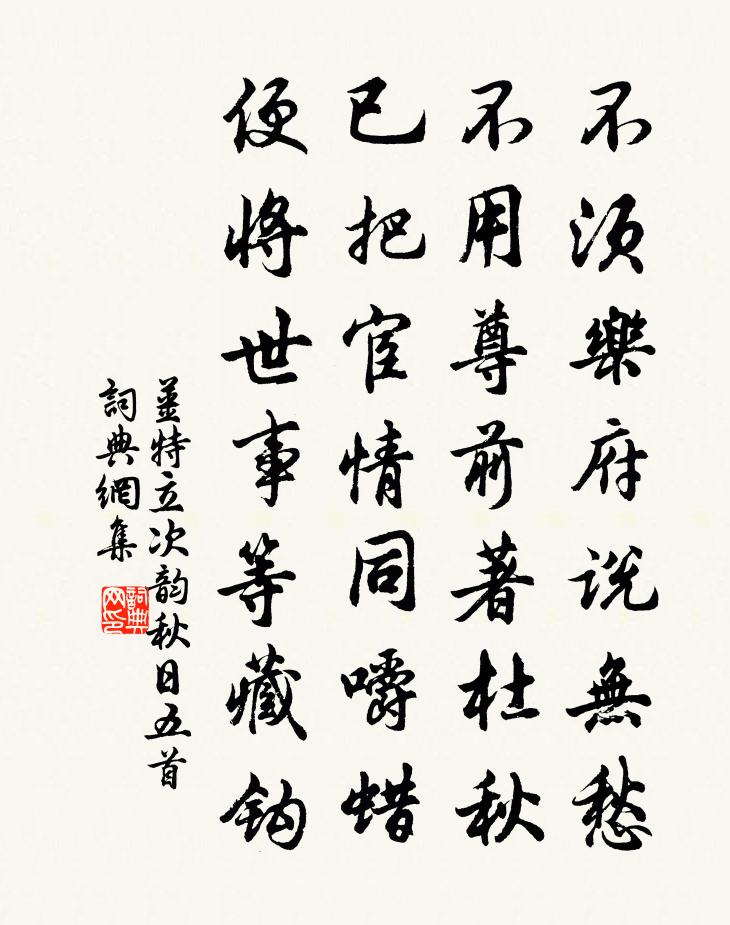 不須樂府説無愁
不用尊前著杜秋
已把宦情同嚼蜡
便將世事等藏鈎
姜特立次韵秋日五首
詞典網集
詞典网印